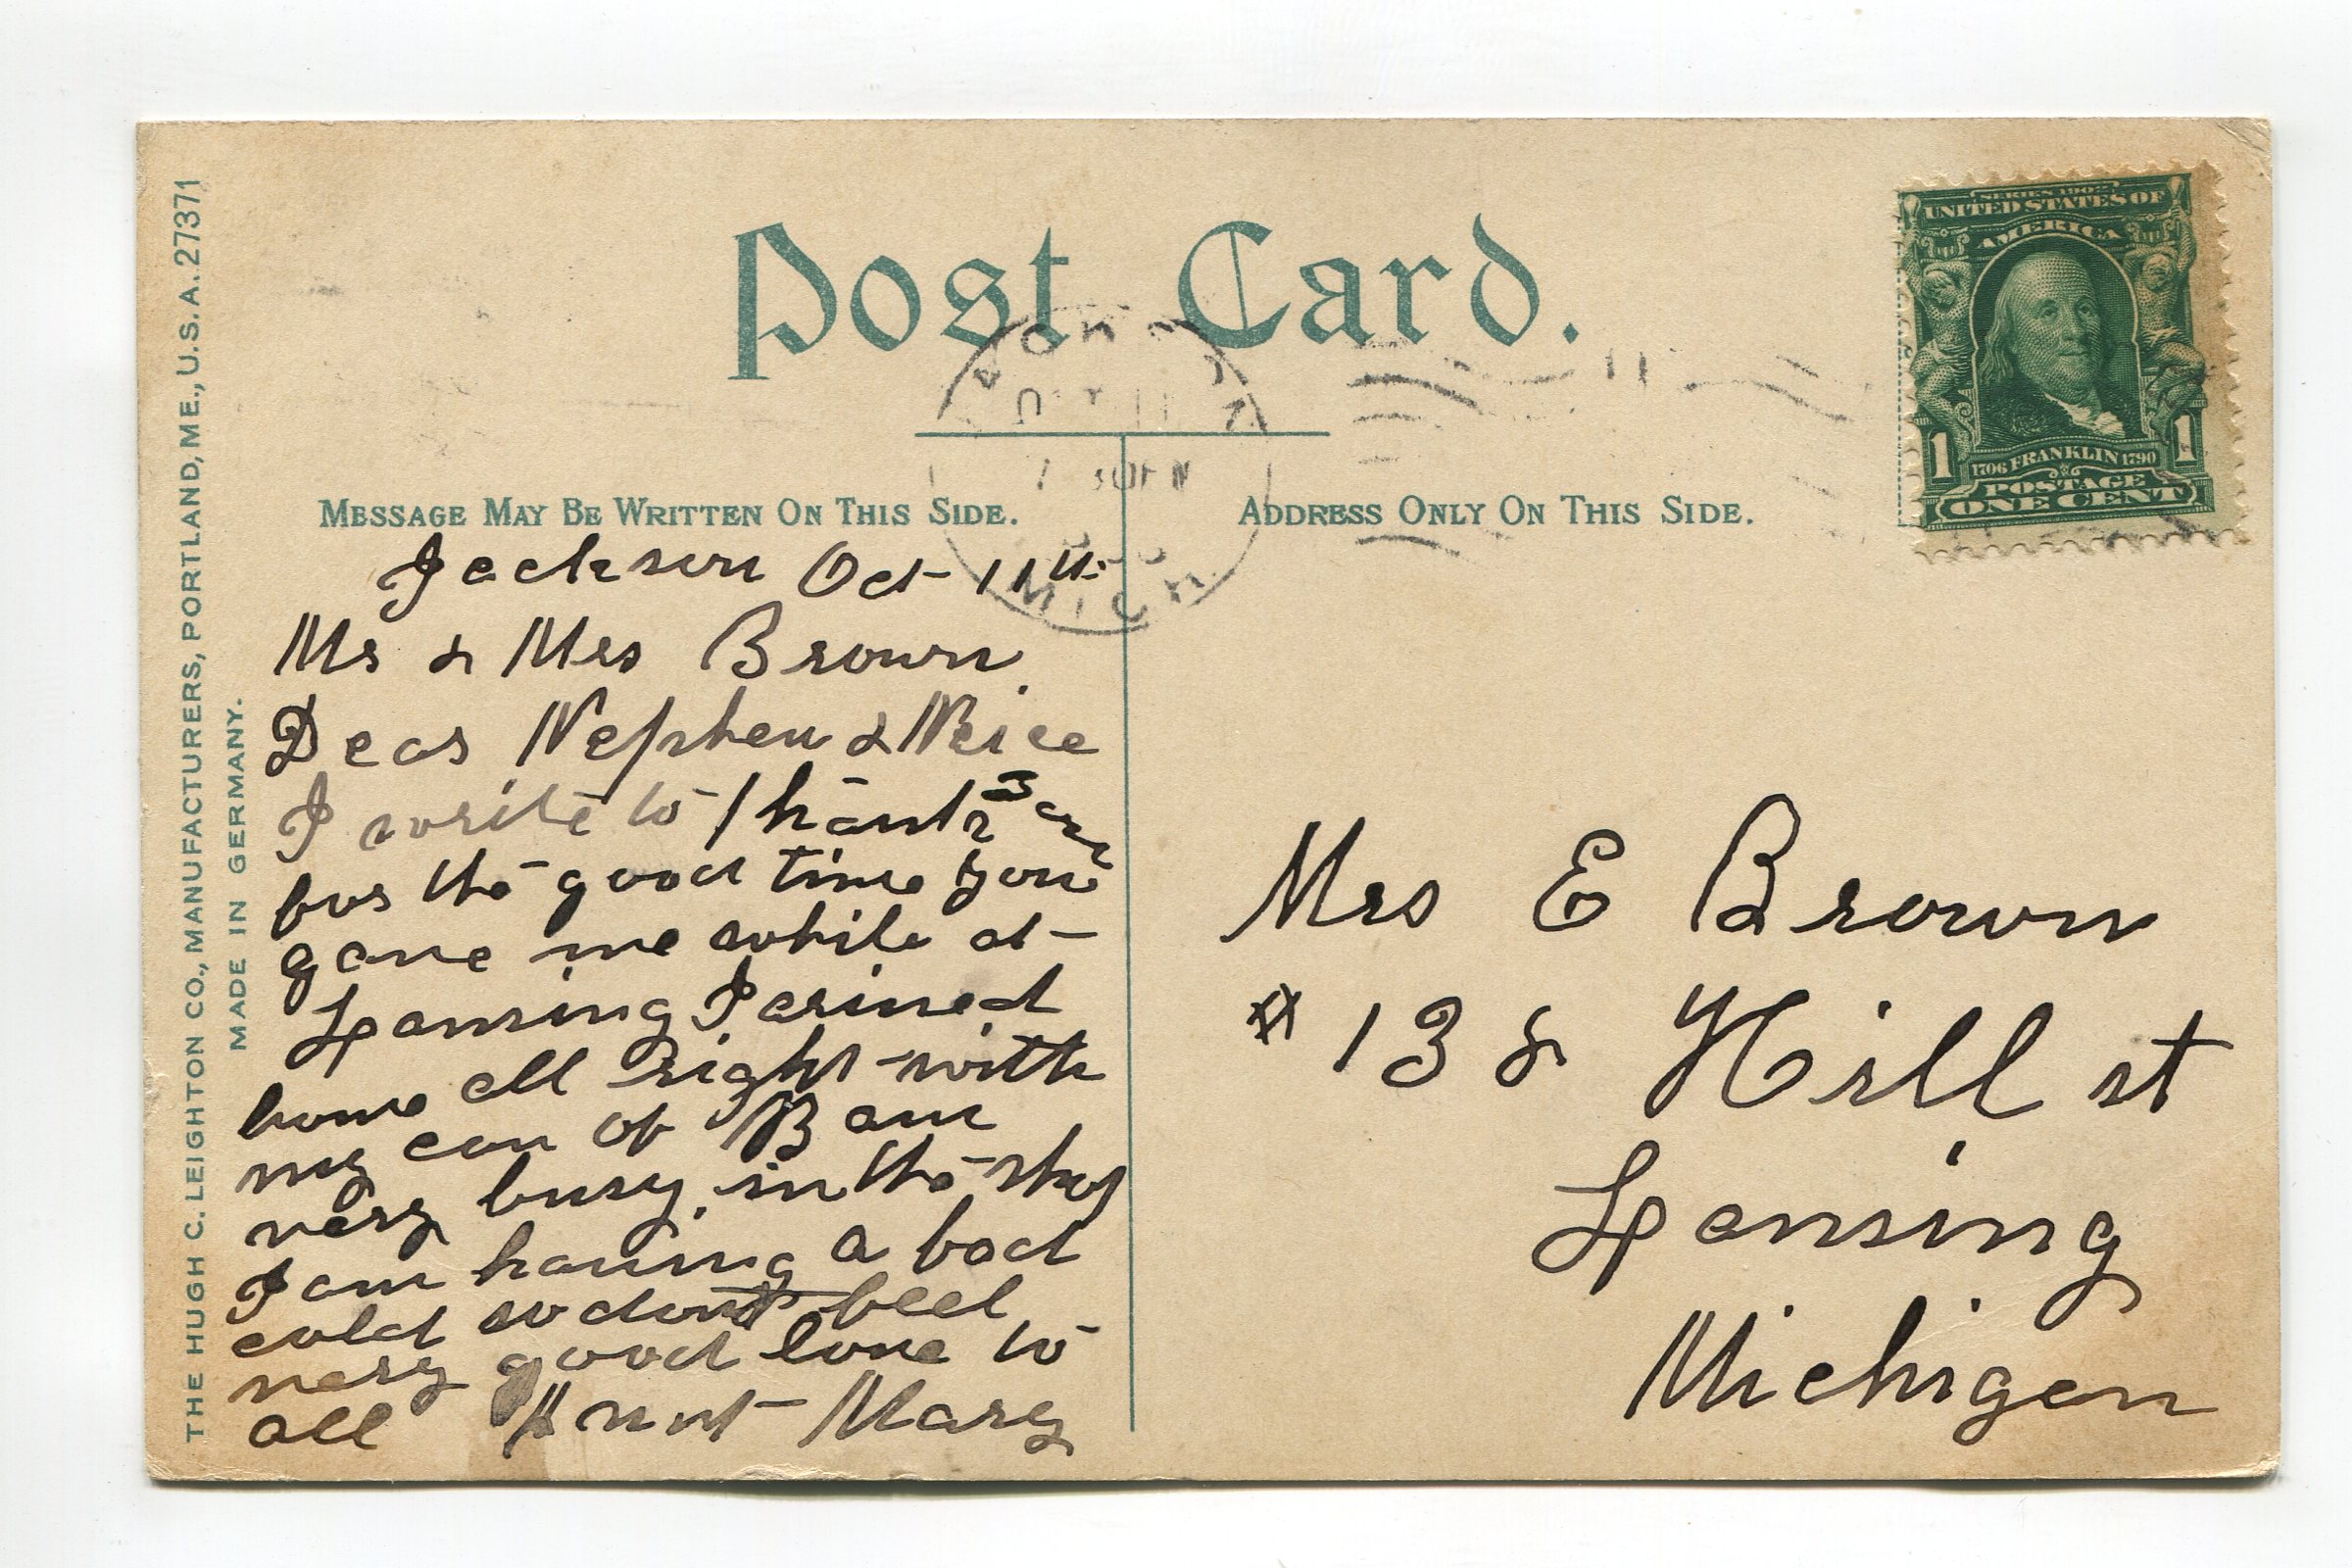 THE HUGH C. LEIGHTON CO., MANUFACTURERS, PORTLAND, ME., U.S.A. 27371
MADE IN GERMANY.
Post Card.
SERIES 1902
UNITED STATES OF
AMERICA
1 1
1706 FRANKLIN 1790
POSTAGE
ONE CENT
JACKSON
OCT 11
30 PM
MICH
MESSAGE MAY BE WRITTEN ON THIS SIDE.
Jackson Oct 11th
Mr & Mrs Brown.
Dear Nephew & Neice
I write to thank
for the good time you
gave me while at
Lansing I arived
home all right with
my can of B am
very busy in the shop
I am having a bad
cold so dont feel
very good love to
all Aunt Mary
ADDRESS ONLY ON THIS SIDE.
Mrs E Brown
# 138 Hill st
Lansing
Michigan